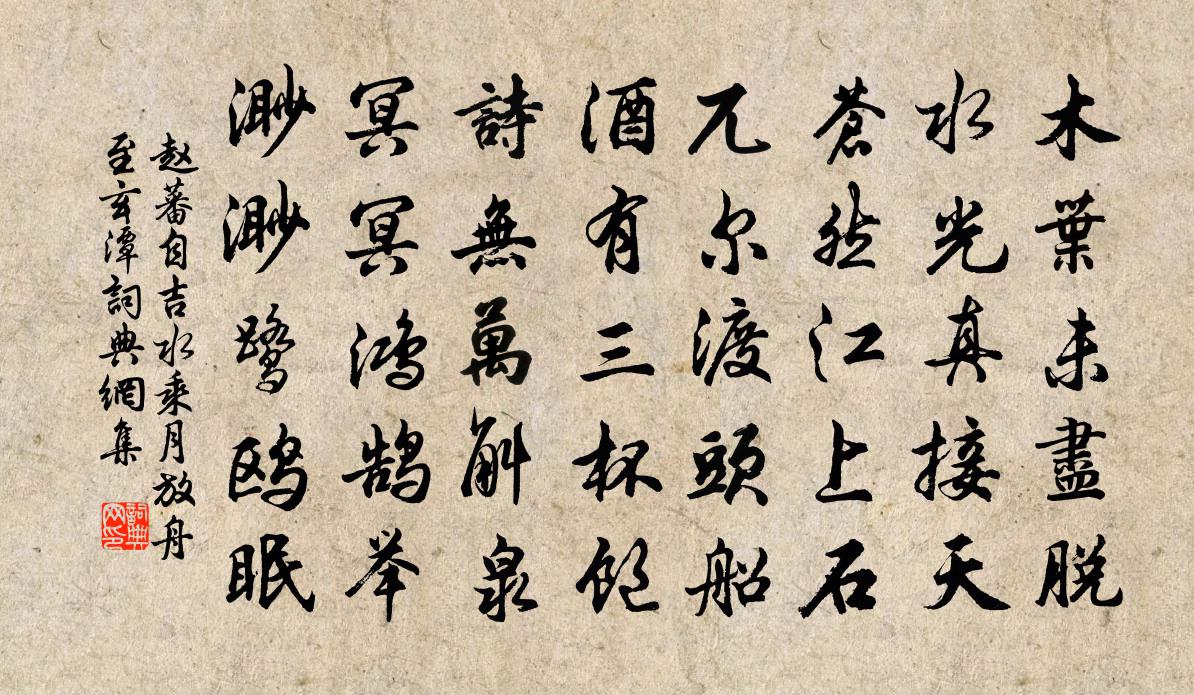 木葉未盡脫
水光真接天
蒼然江上石
兀尔渡頭船
酒有三杯飽
詩無萬斛泉
冥冥鸿鹄举
渺渺鹭鸥眠
赵蕃自吉水乘月放舟
至玄潭詞典網集
詞典网印